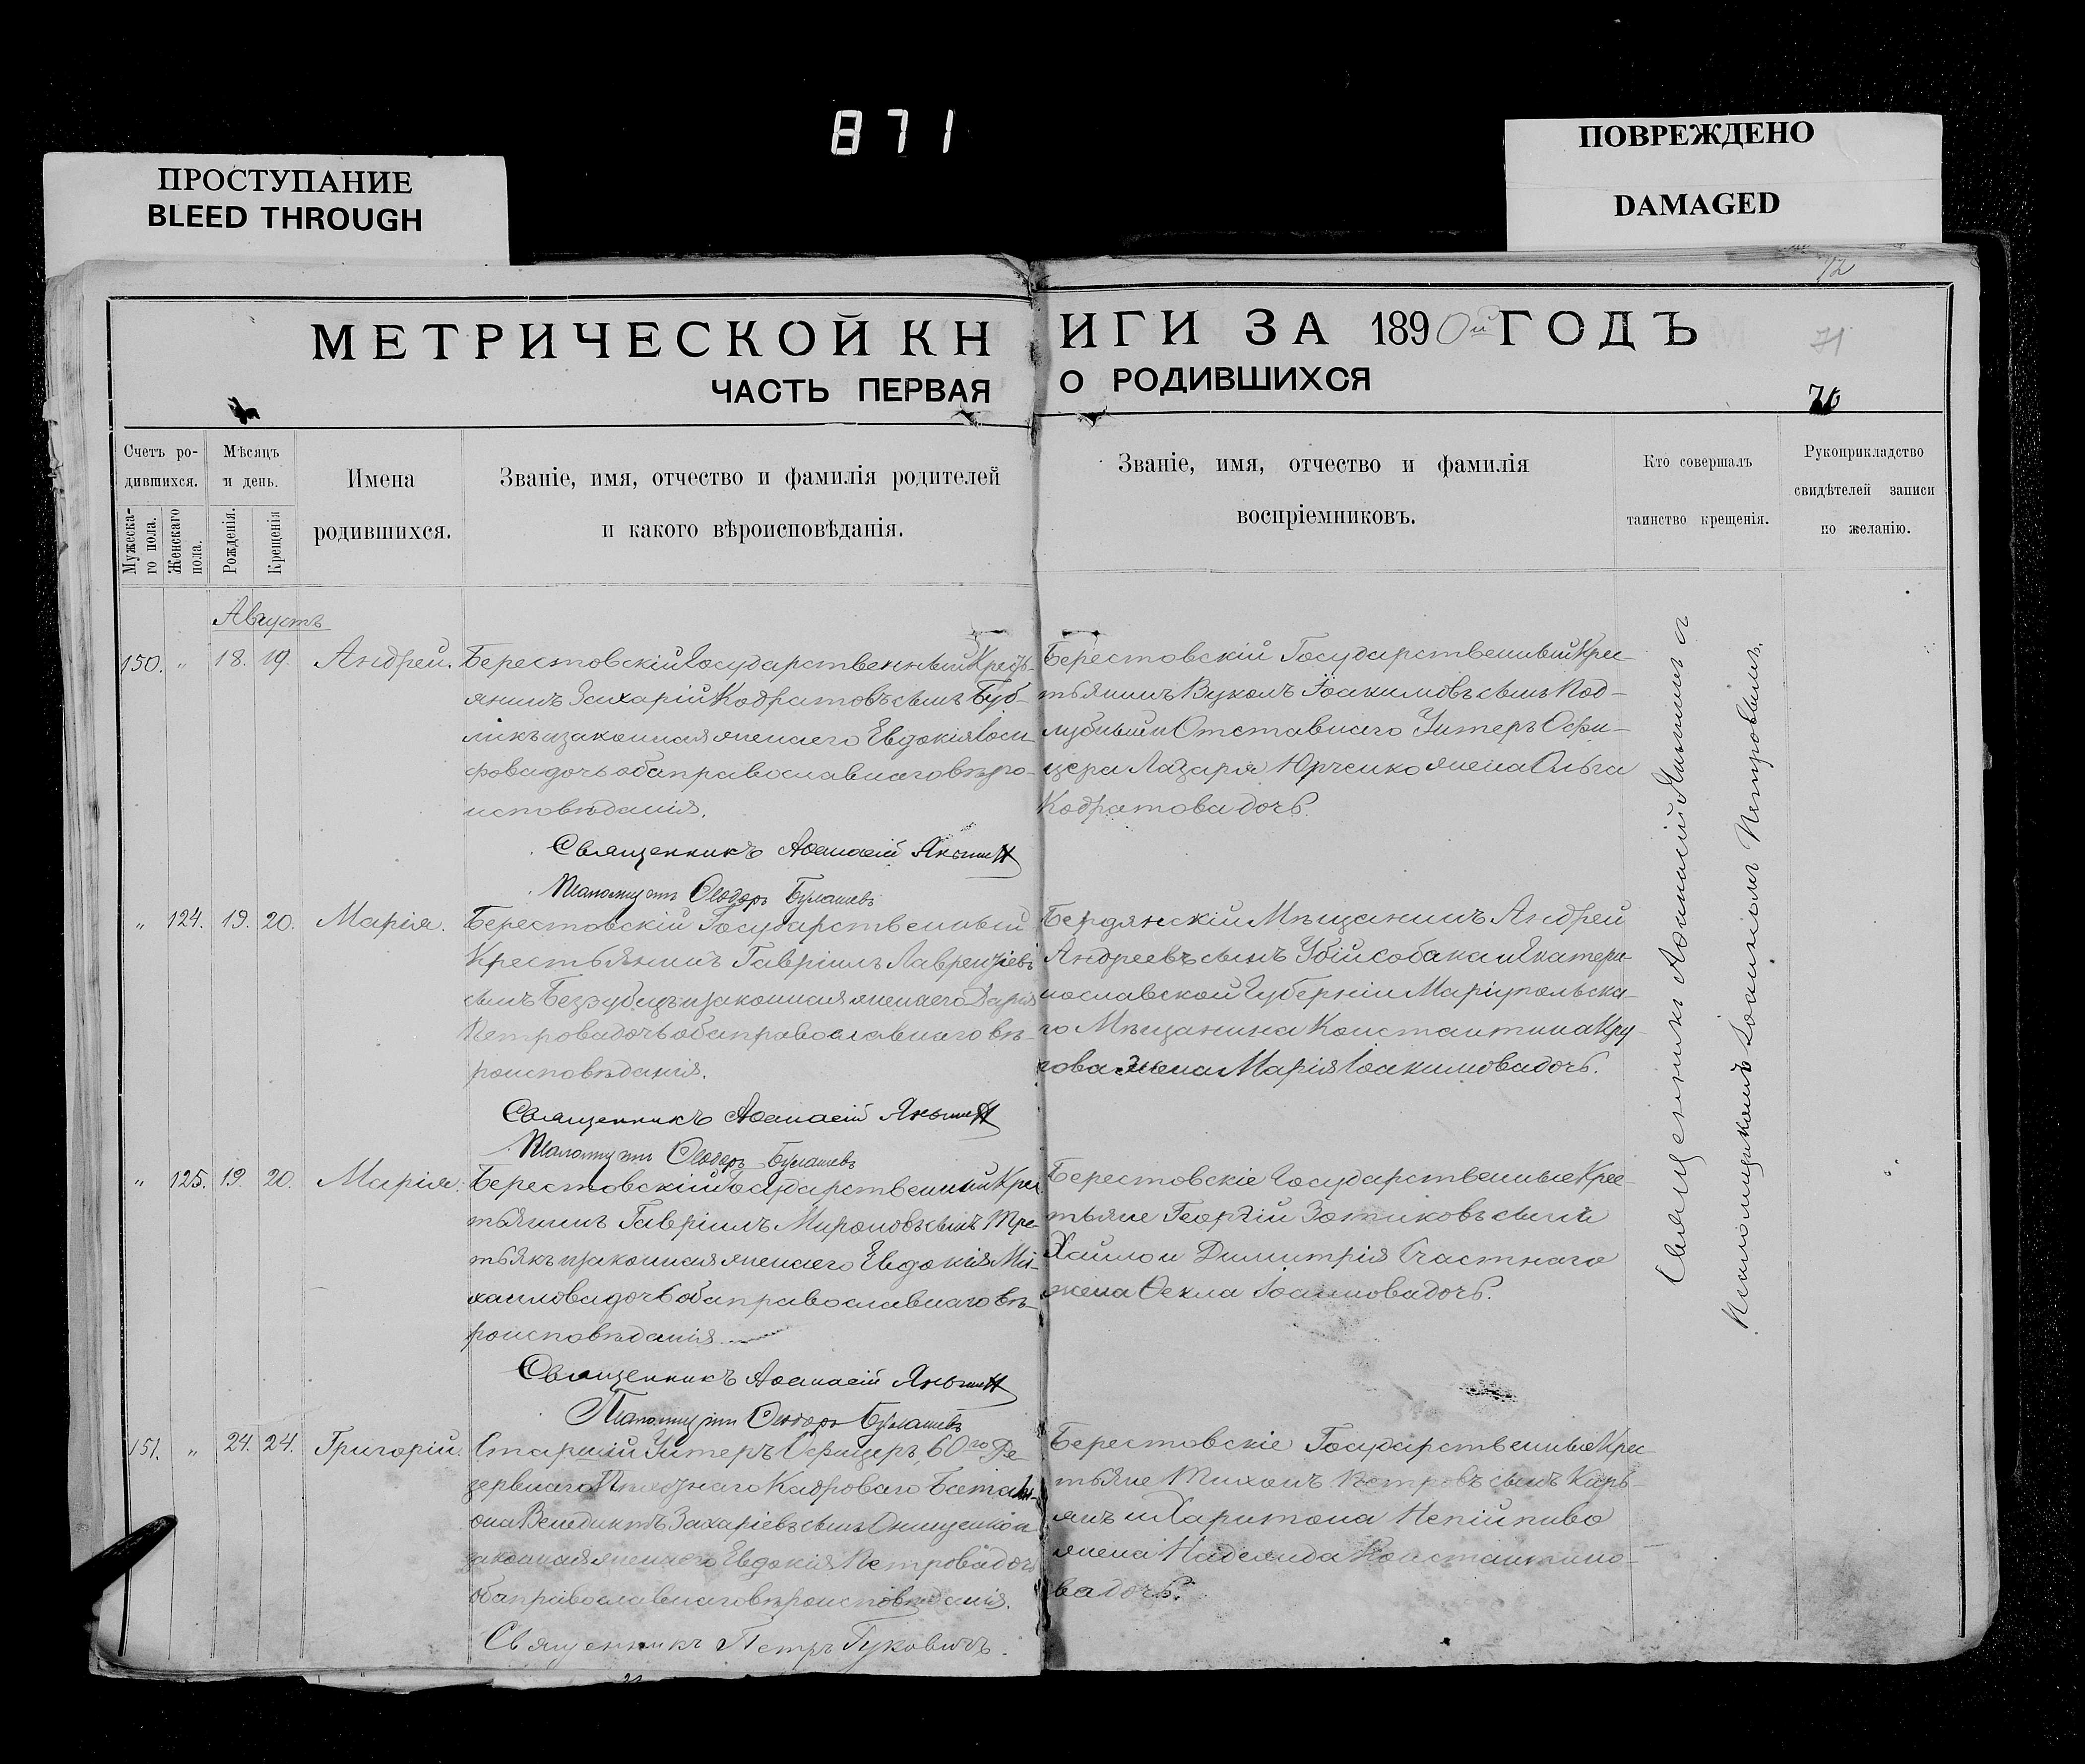 871
ПРОСТУПАНИЕ
BLEED THROUGH
ПОВРЕЖДЕНО
DAMAGED
72
МЕТРИЧЕСКОЙ КНИГИ ЗА 1890й ГОДЪ
71
ЧАСТЬ ПЕРВАЯ О РОДИВШИХСЯ
70
Счетъ родившихся.
Мужеска-
го пола.
Женскаго
пола.
Мѣсяцъ
и день.
Рожденія.
Крещенія
Имена
родившихся.
Званіе, имя, отчество и фамилія родителей
и какого вѣроисповѣданія.
Званіе, имя, отчество и фамилія
воспріемниковъ.
Кто совершалъ
таинство крещенія.
Рукоприкладство
свидѣтелей записи
по желанію.
Августъ
150. " 18. 19. Андрей.
Берестовскій Государственный Кресть-
янинъ Захарій Кодратовъ сынъ Буб-
ликъ и законная жена его Евдокія Іоси-
фова дочь оба православнаго вѣро-
исповѣданія.
Священникъ Аѳанасій Яньшин
Псаломщикъ Ѳеодоръ Булашевъ
Берестовскій Государственный Крес-
тьянинъ Вуколъ Іоакимовъ сынъ Под-
лубный и Отставнаго Унтеръ Офи-
цера Лазаря Юрченко жена Ольга
Кодратова дочь.
" 124. 19. 20. Марія.
Берестовскій Государственный
Крестьянинъ Гавріилъ Лаврентіевъ
сынъ Беззубецъ и законная жена его Дарія
Петрова дочь оба православнаго вѣ-
роисповѣданія.
Священникъ Аѳанасій Яньшин
Псаломщикъ Ѳеодоръ Булашевъ
Бердянскій Мѣщанинъ Андрей
Андреевъ сынъ Убійсобака и Екатери-
нославской Губерніи Маріупольска-
го Мѣщанина Константина Кру-
гова жена Марія Іоакимова дочь.
" 125. 19. 20. Марія.
Берестовскій Государственный Крес-
тьянинъ Гавріилъ Мироновъ сынъ Тре-
тьякъ и законная жена его Евдокія Ми-
хаилова дочь оба православнаго вѣ-
роисповѣданія
Священникъ Аѳанасій Яньшин
Псаломщикъ Ѳеодоръ Булашевъ
Берестовскіе Государственные Крес-
тьяне Георгій Зотиковъ сынъ
Хайло и Димитрія Счастнаго
жена Ѳекла Іоаннова дочь.
151. " 24. 24. Григорій.
Старшій Унтеръ Офицеръ, 60го Ре-
зервнаго Пѣхотнаго Кадроваго Баталі-
она Венедиктъ Захаріевъ сынъ Онищенко и
законная жена его Евдокія Петрова дочь
оба православнаго вѣроисповѣданія.
Священникъ Петръ Гуковичъ.
Берестовскіе Государственные Крес-
тьяне Тихонъ Петровъ сынъ Карь-
янъ и Харитона Непійпиво
жена Надежда Константино-
ва дочь.
Священникъ Аѳанасій Яньшинъ съ
Псаломщикомъ Іоанномъ Петровымъ.